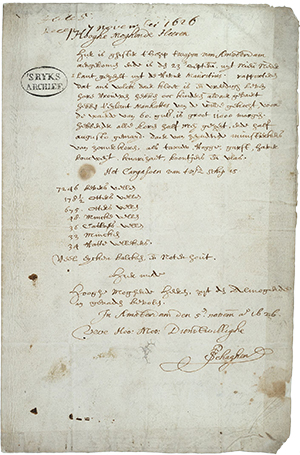 Recep. 7 November 1626
Hooghe Moghende Heeren
Hier is ghister t'schip t'wapen van Amsterdam
aengekomen ende is den 23 septem. uyt Nieu Neder
lant gezeylt uyt de rivier Mauritius. rapporteren
dat ons volck daer kloec is en vredigh leven
hare vrouwen hebben ooc kinders aldaer gebaert
hebben t'eylant Manhattes van de wilden gekocht voor
de waerde van 60 gul. is groot 11000 morgen.
hebbende alle koren half mey gezeyt, ende half
augusto gemayt. Daer van zendende munsterkens
van zomerkoren, als tarwe, rogge, garst, haver
boucweyt, knarizaet, boontjens en vlas.
Het Cargasoen van tsz schip is
7246 bevers vellen
178½ otters vellen
675 otters vellen
48 mincke vellen
36 catloes vellen
33 mincken
34 ratte vellekens
Veel eycken balcken, en Noten hout.
Hier mede
Hooghe Moghende Heeren, zijt de Almogende
in genade bevolen.
In Amsterdam den 5 novem. ao 1626.
Uwe Hoo: Moo: Dienstwillighe
P Schaghen
S RYKS
ARCHIEF